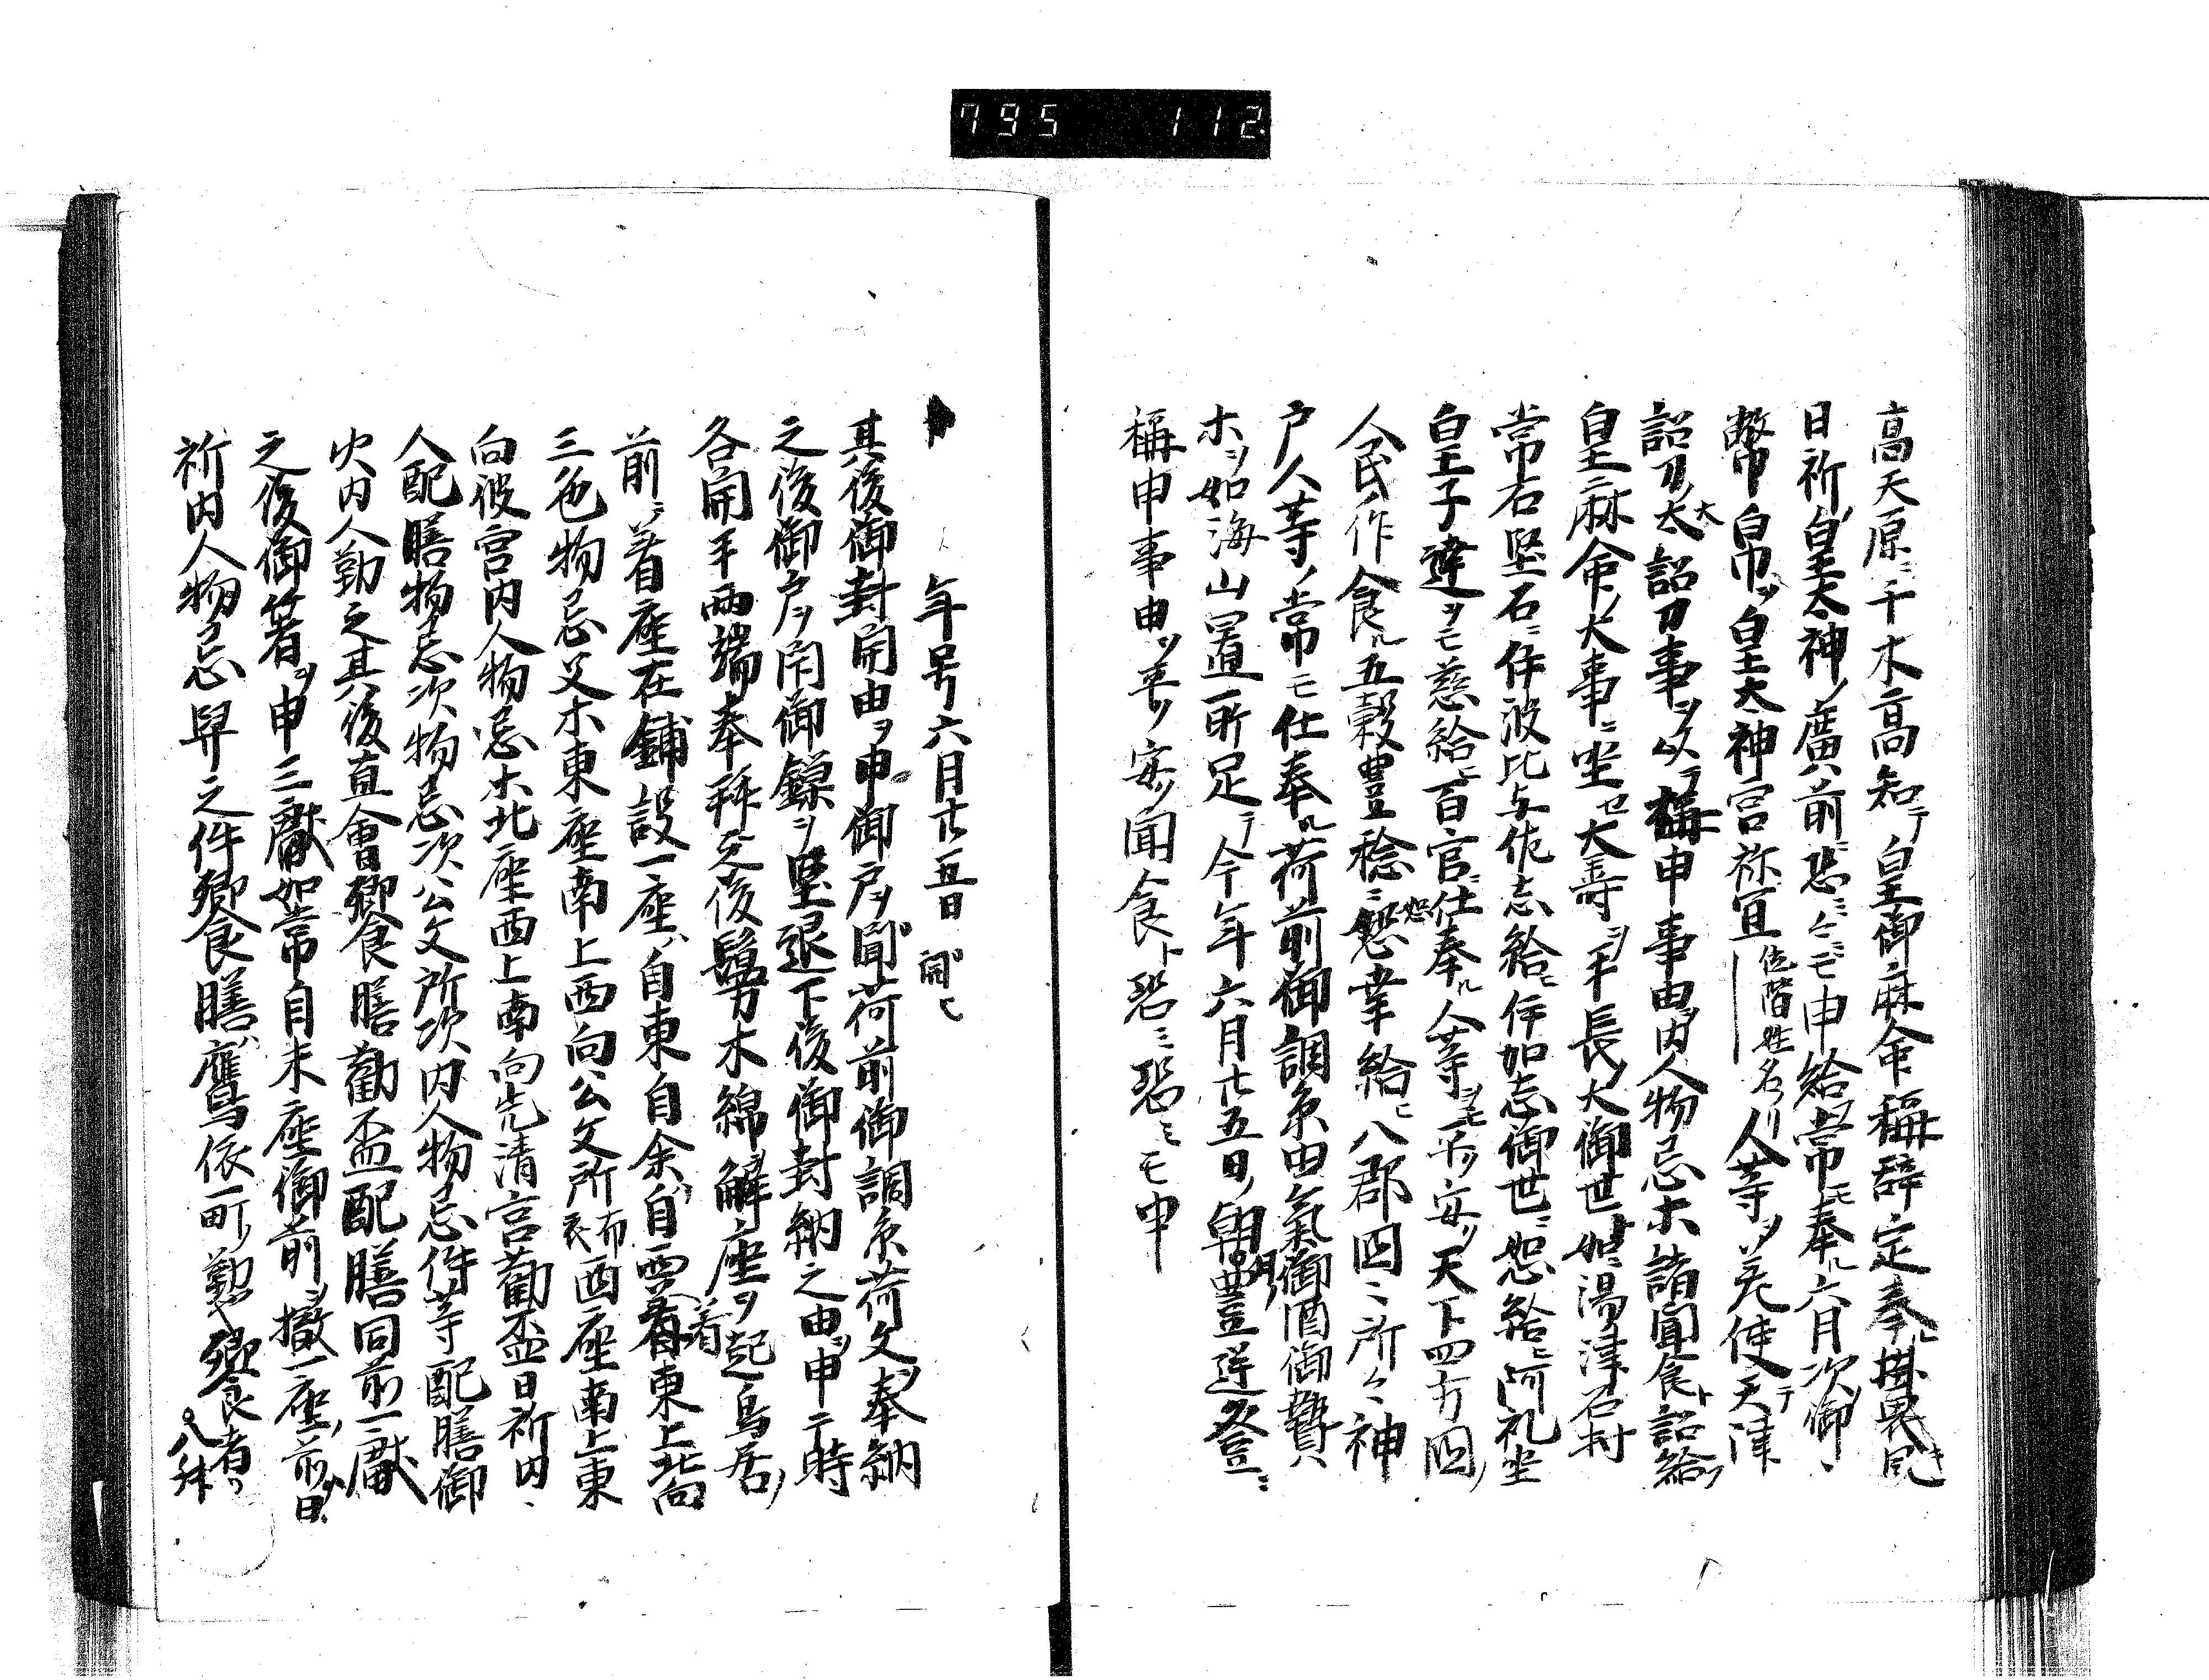 795 112
高天原ニ千木高知テ皇御麻命稱辞定奉ル掛畏キ
日祈皇太神ノ廣前ニ恐ミ々ミモ申給常モ奉ル六月次御
幣白帛ヲ皇太神宮祢宜位階姓名人等ヲ差使テ天津
詔刀ノ太詔刀事ヲ以テ稱申事由ヲ内人物忌ホ諸聞食ト詔給フ
皇麻命ノ大事ニ坐セ大寿ヲ手長ノ大御世ト如湯津石村
常石堅石ニ伊波比与佐志給ニ伊加志御世ニ恕給ニ阿礼坐
皇子達ヲモ慈給ニ百官ニ仕奉ル人等ヲモ平ク安ク天下四方国ノ
人民ノ作食ル五穀豊稔ニ恕幸給ニ八郡国ニ所々神
戸人等ノ常モ仕奉ル荷前御調糸由氣御酒御贄
ホヲ如海山置所足テ今年六月廿五日ノ朝豊逆登ニ
稱申事由ヲ平ク安ク聞食ト恐ミ恐ミモ申
年号六月廿五日
其後御封開由ヲ申御戸ヲ開荷前御調糸荷文奉納
之後御戸ヲ閇御鏁ヲ堅退下後御封納之由ヲ申二時
各開手両端奉拝之後鬘木綿ヲ解座ヲ起鳥居ノ
前ニ着座在鋪設一座ハ自東自余ハ自西着東上北向
三色物忌父ホ東座南上西向公文所布衣西座南上東
向彼宮内人物忌ホ北座西上南向先清宮勧盃日祈内
人配膳物忌次物忌次公文所次内人物忌件等配膳御
火内人勤之其後直會饗膳勧盃配膳同前一獻
之後御箸ヲ申三獻如常自末座御前ヲ撤一座ノ前ハ日
祈内人物忌舁之件饗膳ハ鷹鳥依町ノ勤饗者